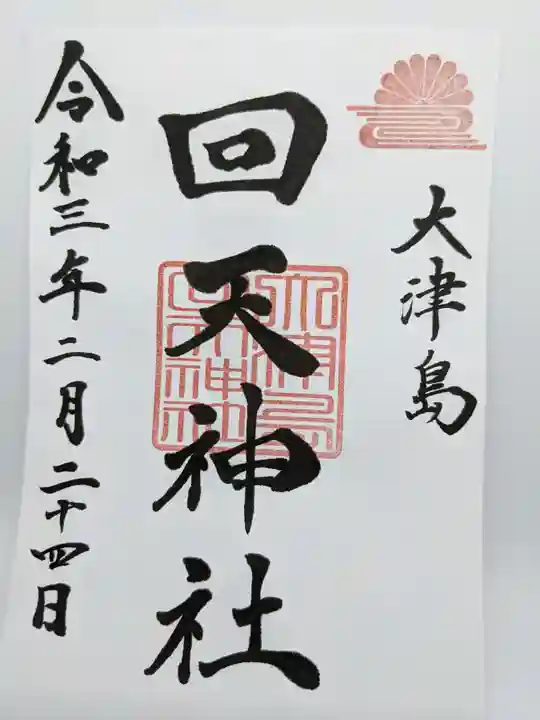 大津島
回天神社
大津島回天神社
令和三年二月二十四日